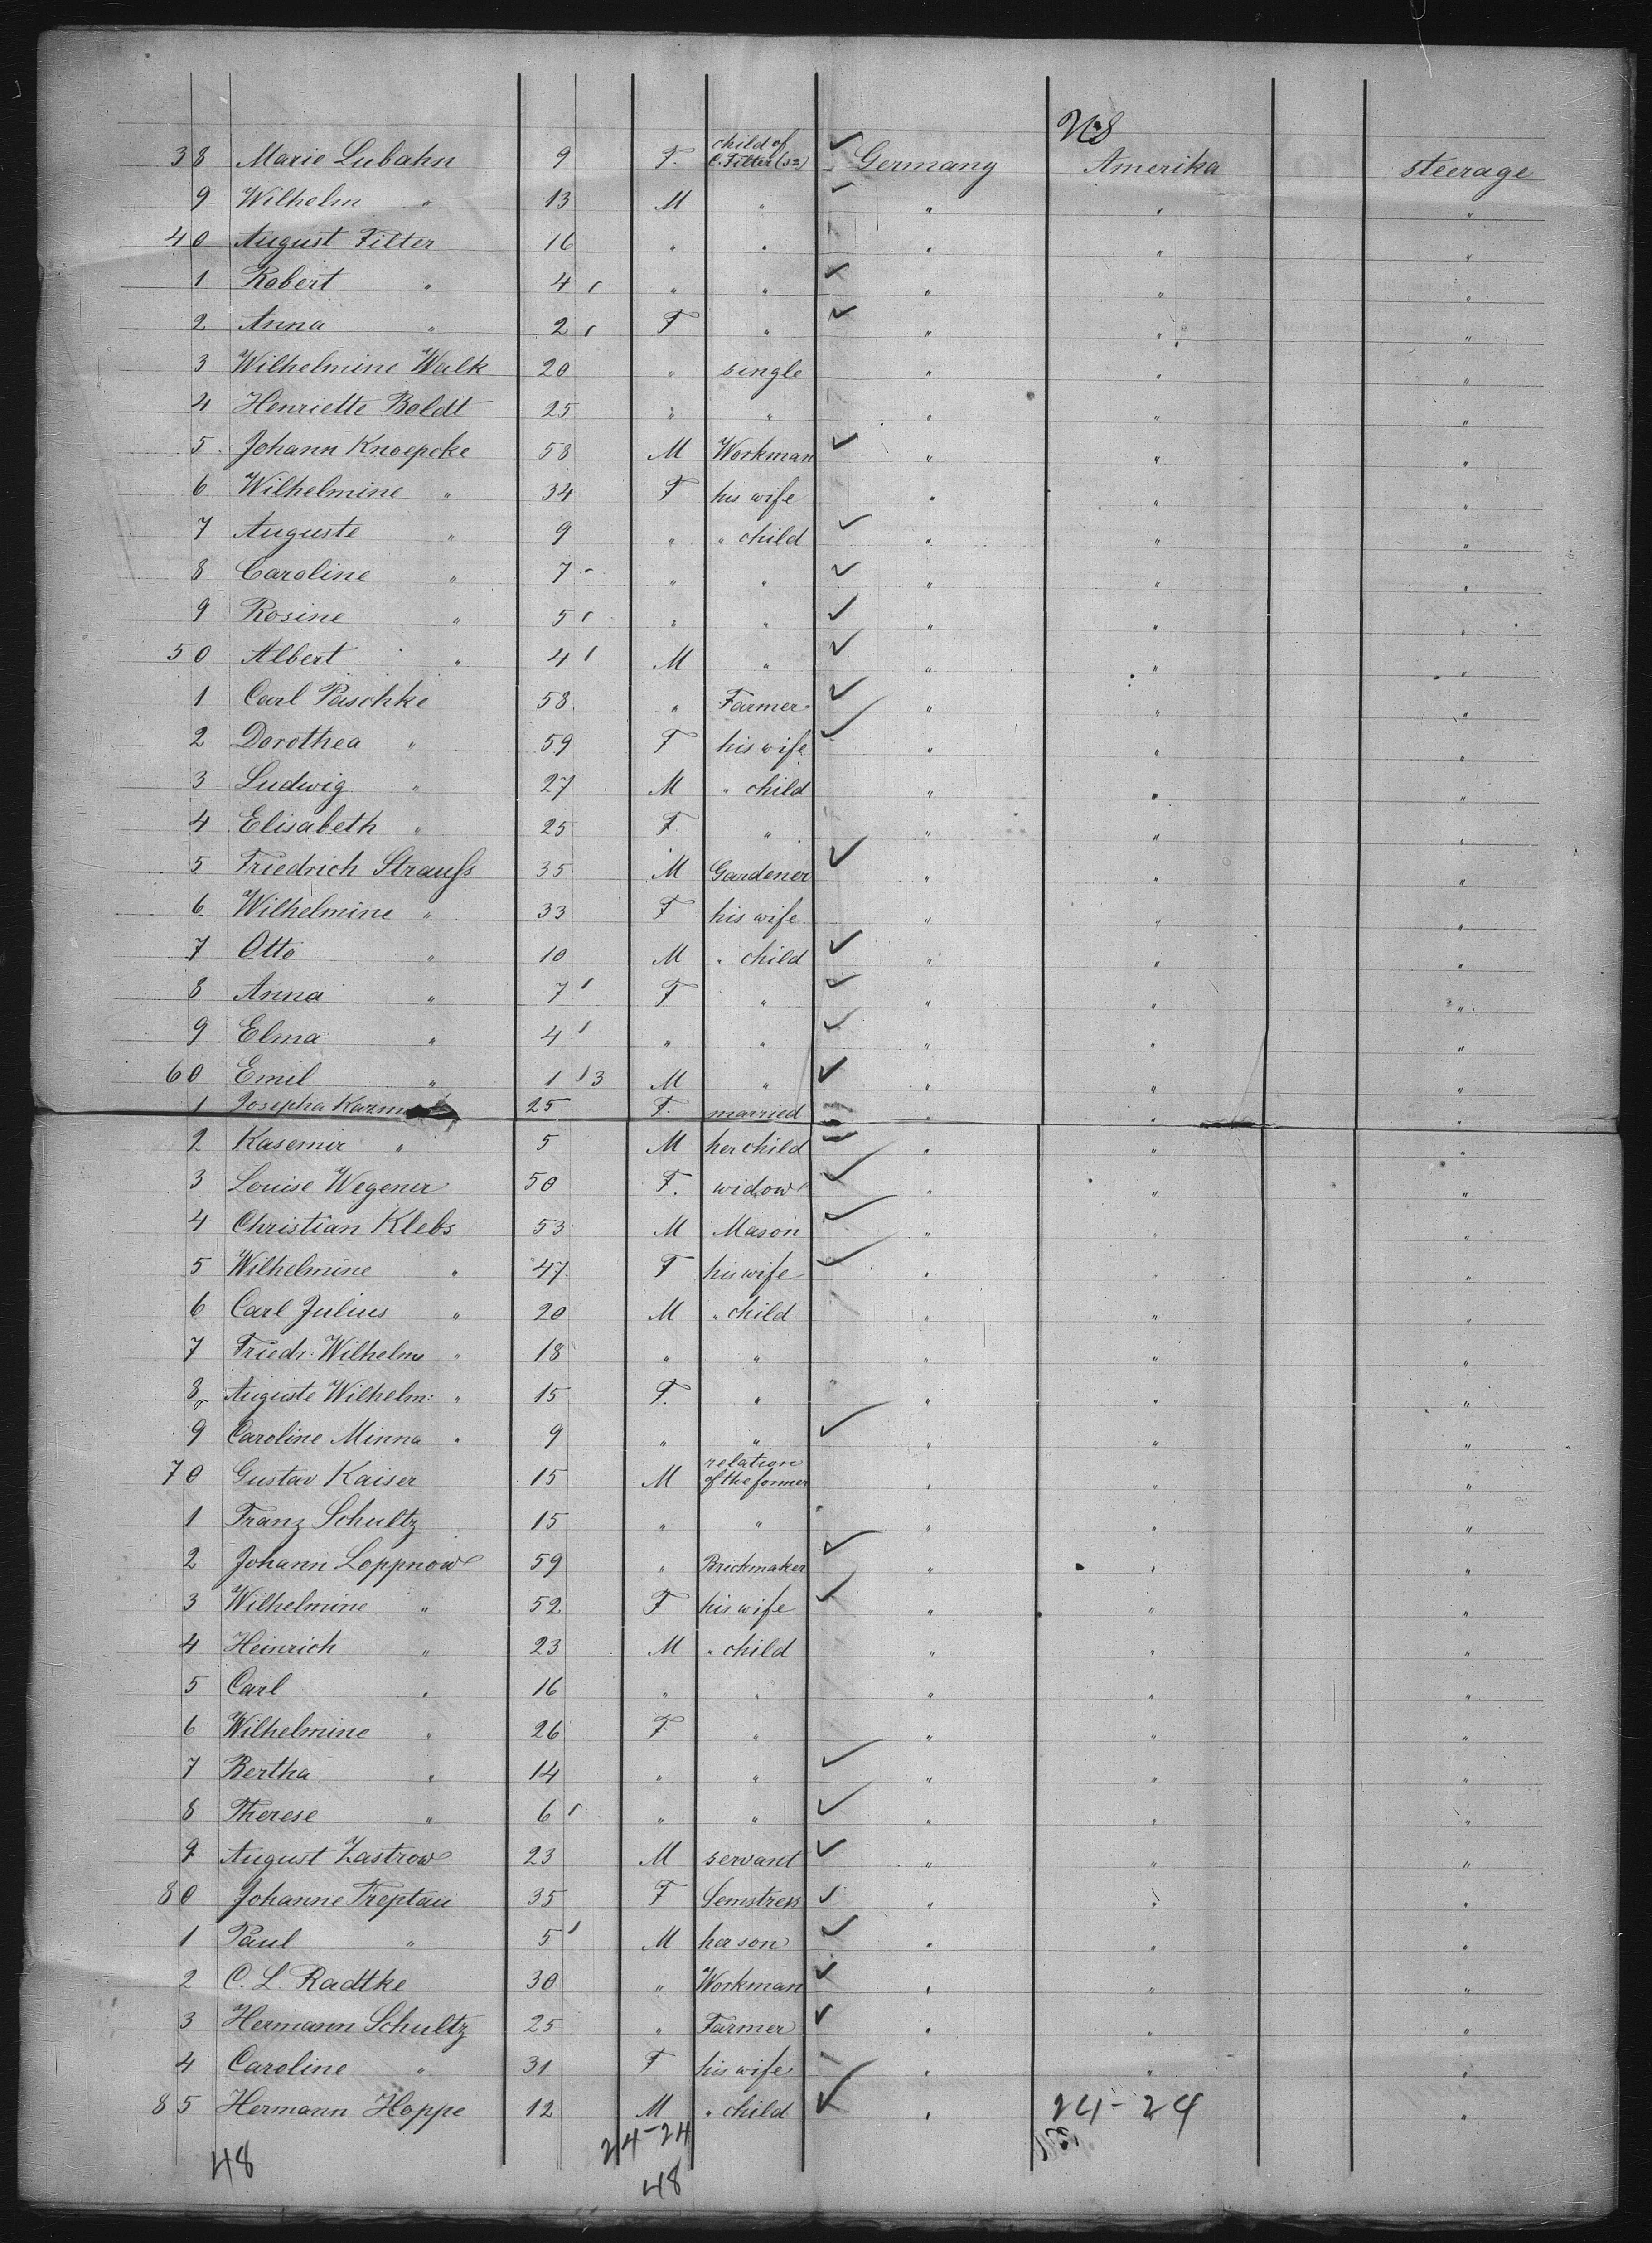 U.S
38 Marie Lubahn 9 F. child of C. Filter (32) Germany Amerika steerage
9 Wilhelm " 13 M " " " "
40 August Filter 16 " " " " "
1 Robert " 4 " " " " "
2 Anna " 2 F " " " "
3 Wilhelmine Walk 20 " single " " "
4 Henriette Boldt 25 " " " " "
5 Johann Knoepcke 58 M Workman " " "
6 Wilhelmine " 34 F his wife " " "
7 Auguste " 9 " " child " " "
8 Caroline " 7 " " " " "
9 Rosine " 5 " " " " "
50 Albert " 4 M " " " "
1 Carl Paschke 58 " Farmer " " "
2 Dorothea " 59 F his wife " " "
3 Ludwig " 27 M " child " " "
4 Elisabeth " 25 F. " " " "
5 Friedrich Strauſs 35 M Gardener " " "
6 Wilhelmine " 33 F his wife " " "
7 Otto " 10 M " child " " "
8 Anna " 7 F " " " "
9 Elma " 4 " " " " "
60 Emil " 1 3 M " " " "
1 Josepha 25 F. married " " "
2 Kasemir " 5 M her child " " "
3 Louise Wegener 50 F. widow " " "
4 Christian Klebs 53 M Mason " " "
5 Wilhelmine " 47 F his wife " " "
6 Carl Julius " 20 M " child " " "
7 Friedr. Wilhelm " 18 " " " " "
8 Auguste Wilhelm: " 15 F. " " " "
9 Caroline Minna " 9 " " " " "
70 Gustav Kaiser 15 M relation of the former " " "
1 Franz Schultz 15 " " " " "
2 Johann Loppnow 59 " Brickmaker " " "
3 Wilhelmine " 52 F his wife " " "
4 Heinrich " 23 M " child " " "
5 Carl " 16 " " " " "
6 Wilhelmine " 26 F " " " "
7 Bertha " 14 " " " " "
8 Therese " 6 " " " " "
9 August Zastrow 23 M servant " " "
80 Johanne Treptau 35 F Semstress " " "
1 Paul " 5 M her son " " "
2 C. L. Radtke 30 " Workman " " "
3 Hermann Schultz 25 " Farmer " " "
4 Caroline " 31 F his wife " " "
85 Hermann Hoppe 12 M " child " 24-24 "
48 24-24
48